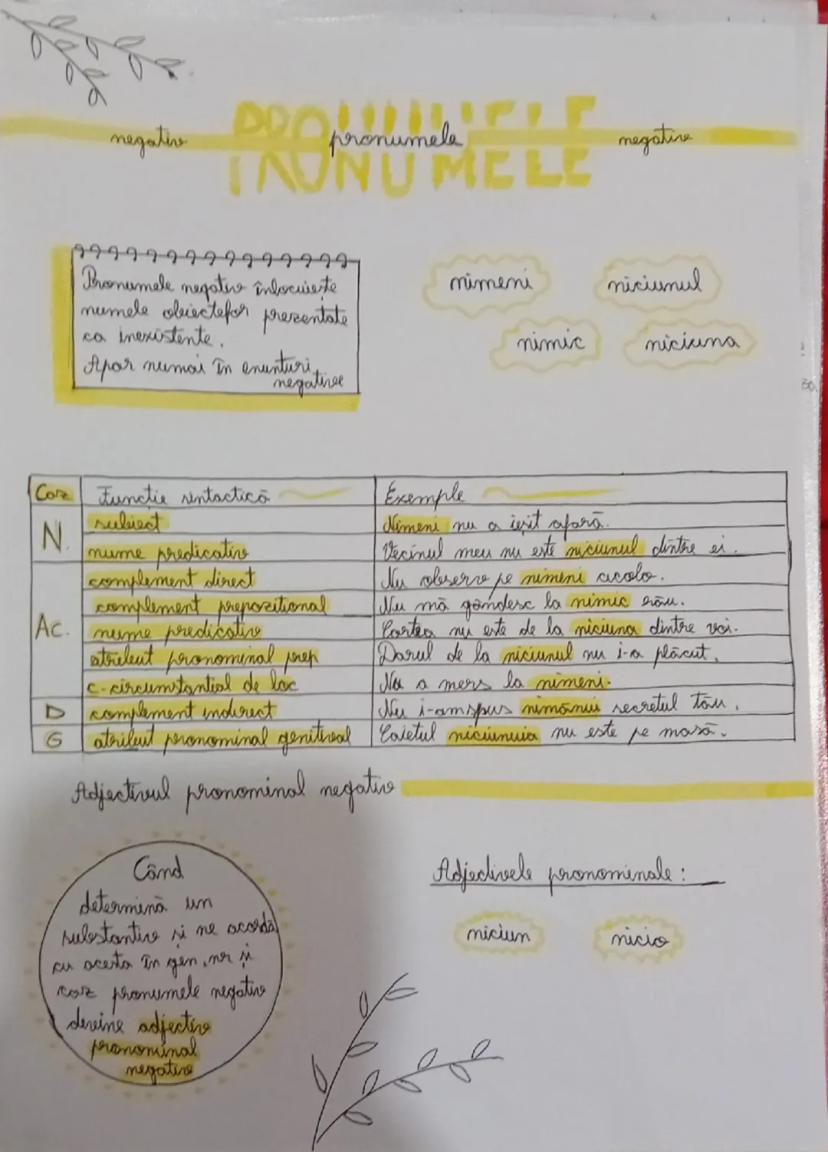 PRONUMELE
negativ pronumele negativ
PRONUMELE
Pronumele negativ înlocuiește
numele obiectelor prezentate
ca inexistente.
Apar numai în enunțuri
negative
nimeni niciunul
nimic niciuna
Caz Funcție sintactică Exemple
N. subiect Nimeni nu a ieșit afară.
nume predicativ Vecinul meu nu este niciunul dintre ei.
Ac. complement direct Nu observ pe nimeni acolo.
complement prepozițional Nu mă gândesc la nimic rău.
nume predicativ Cartea nu este de la niciuna dintre voi.
atribut pronominal prep Darul de la niciunul nu i-a plăcut.
c. circumstanțial de loc Nu a mers la nimeni.
D complement indirect Nu i-am spus nimănui secretul tău.
G atribut pronominal genitival Caietul niciunuia nu este pe masă.
Adjectivul pronominal negativ
Când
determină un
substantiv și se acordă
cu acesta în gen, nr și
caz pronumele negativ
devine adjectiv
pronominal
negativ
Adjectivele pronominale:
niciun nicio